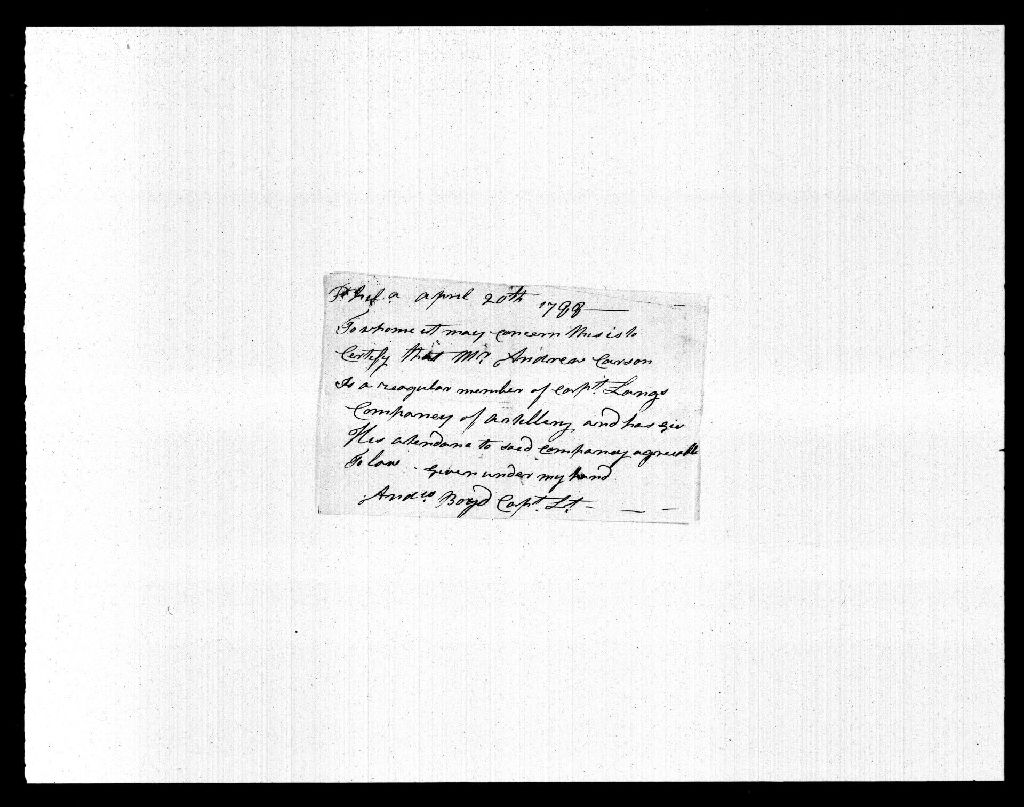 Phila April 20th 1788
To whome it may concern this is to
Certify that Mr. Andrew Carson
Is a reagular member of Capt. Langs
Companey of artillery and has giv
His atendanc to said companey agreeable
To law given under my hand
Andw. Boyd Capt. Lt.